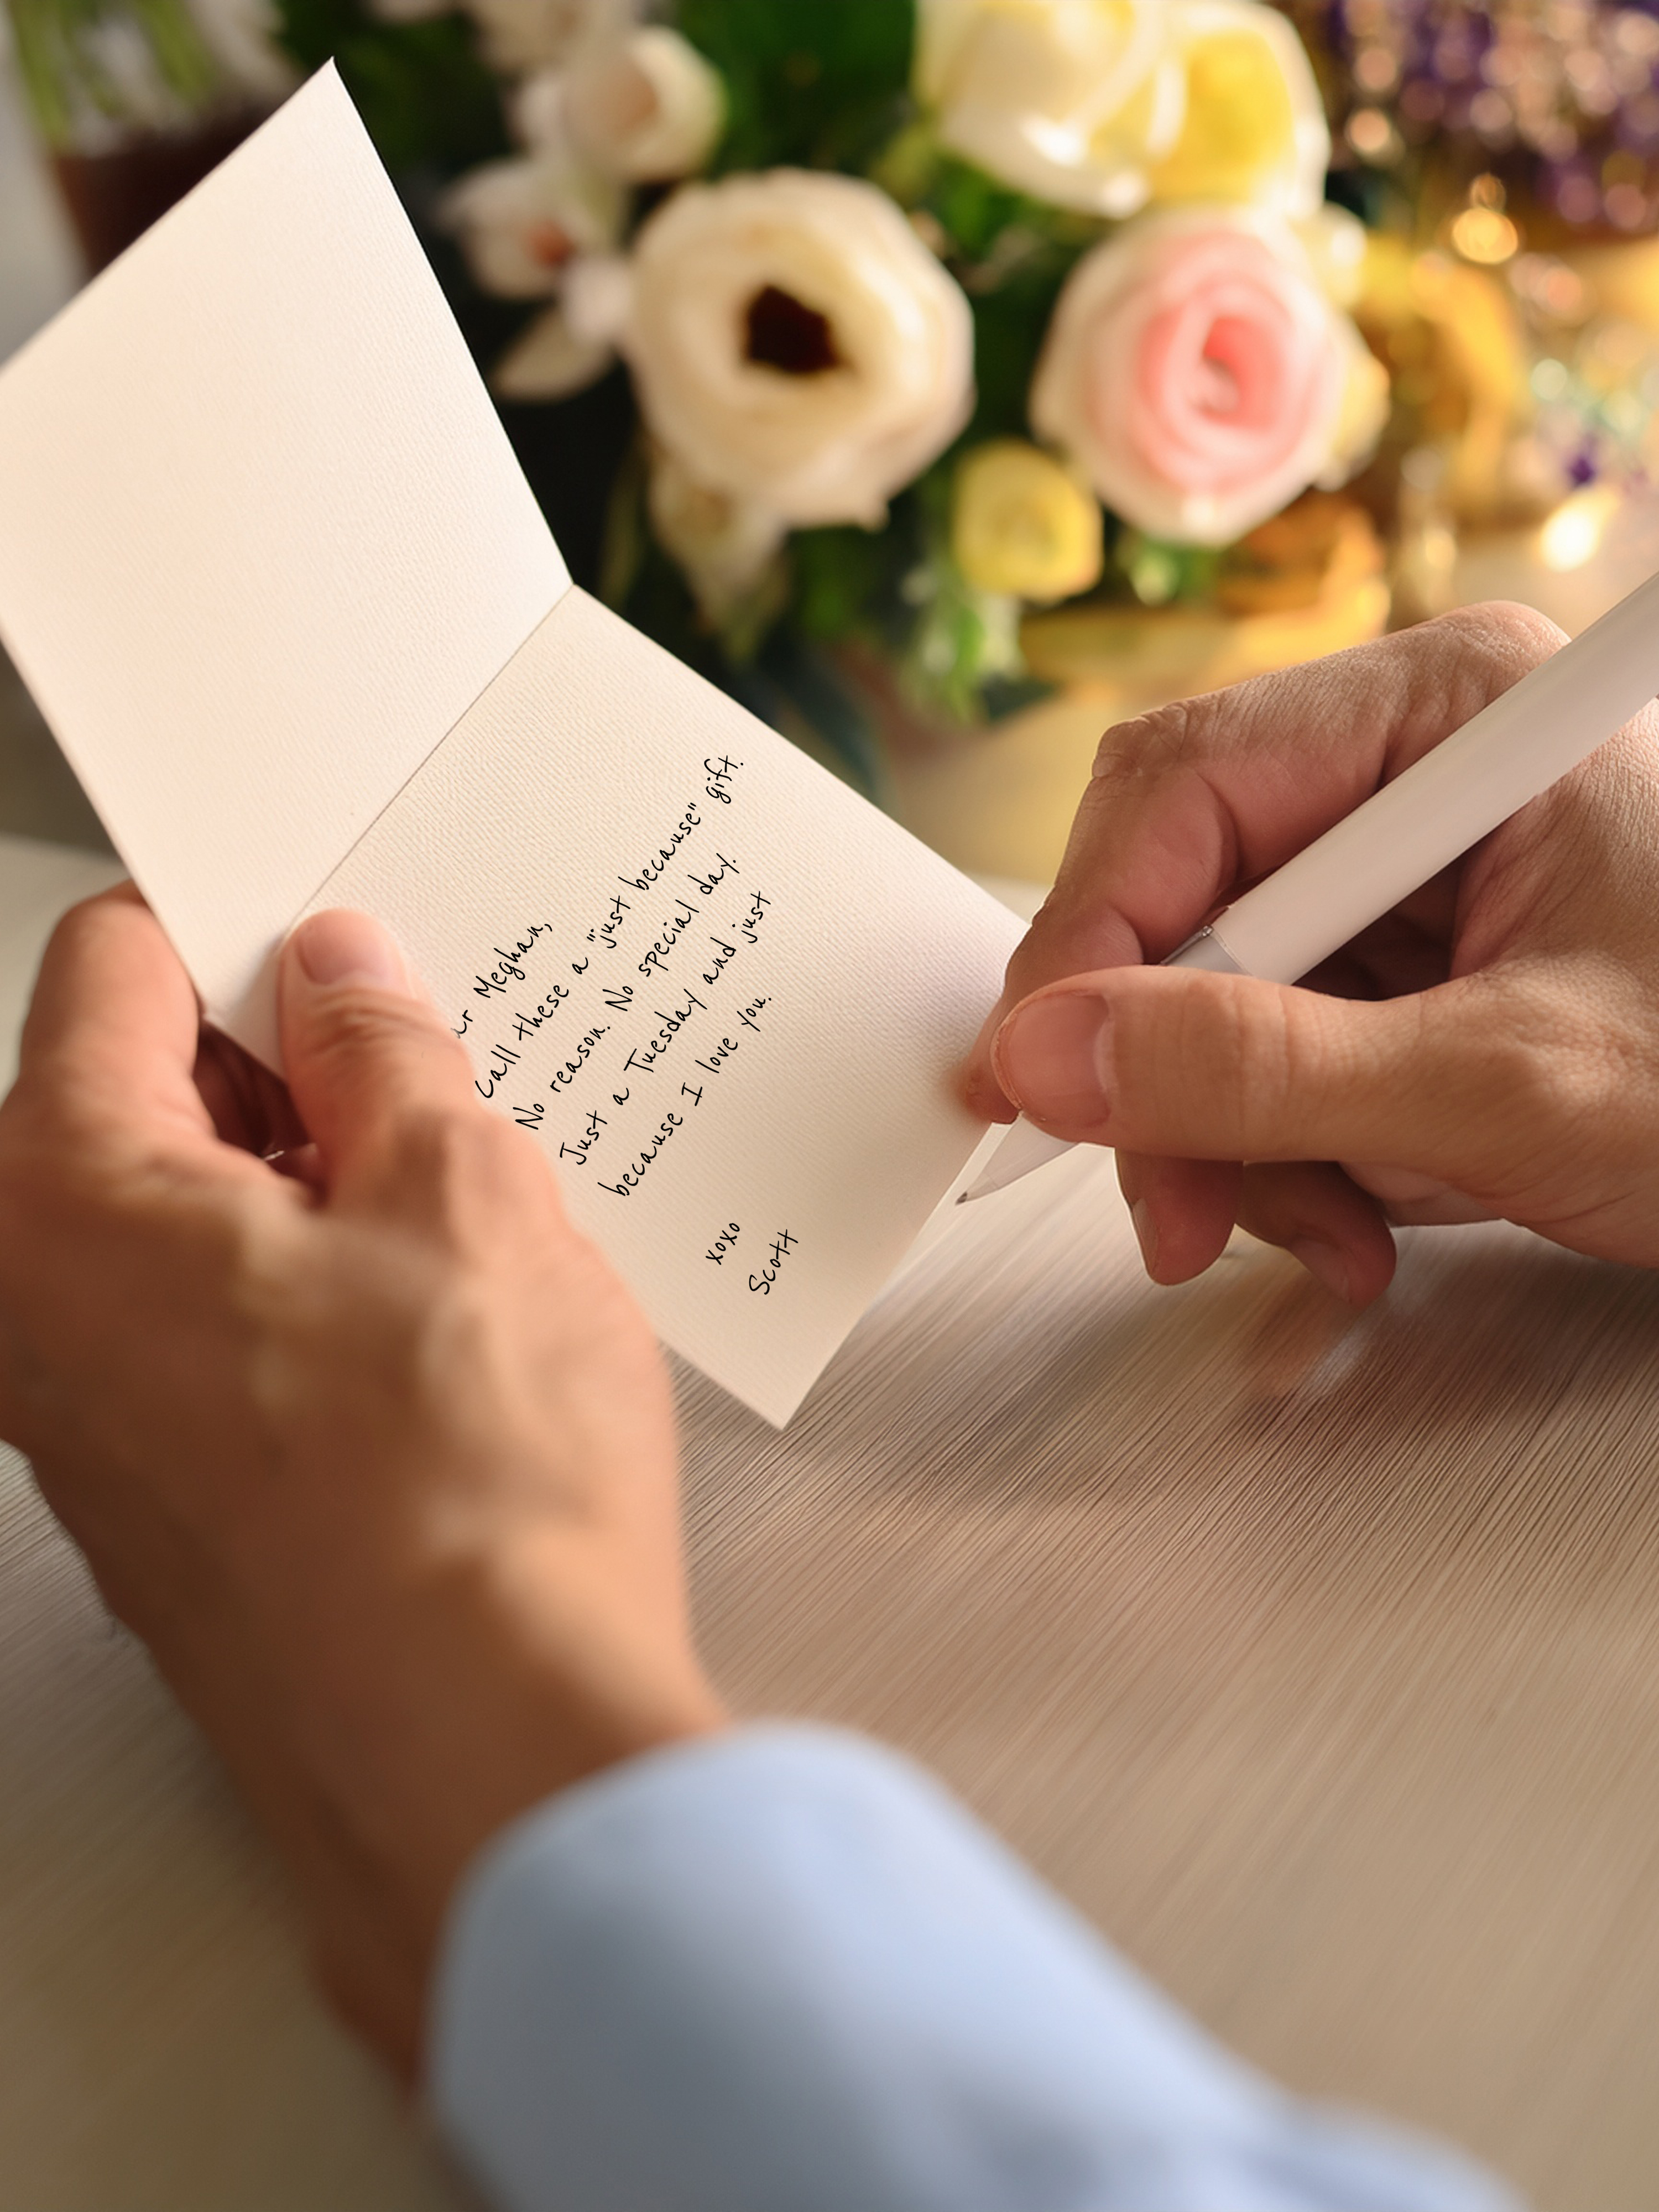 ar Meghan,
Call these a "just because" gift.
No reason. No special day.
Just a Tuesday and just
because I love you.
xoxo
Scott